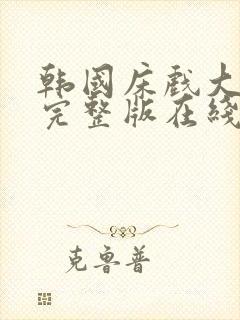 韩国床戏大
完整版在线
克鲁普